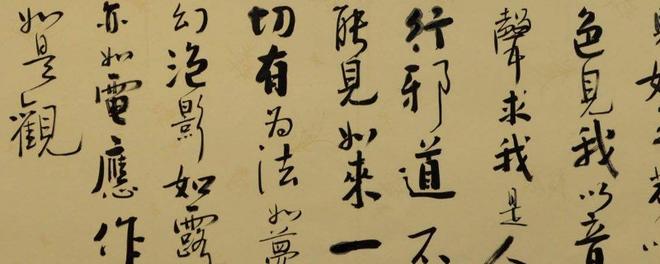 若以
色見我以音
聲求我是人
行邪道不
能見如來一
切有為法如夢
幻泡影如露
亦如電應作
如是觀